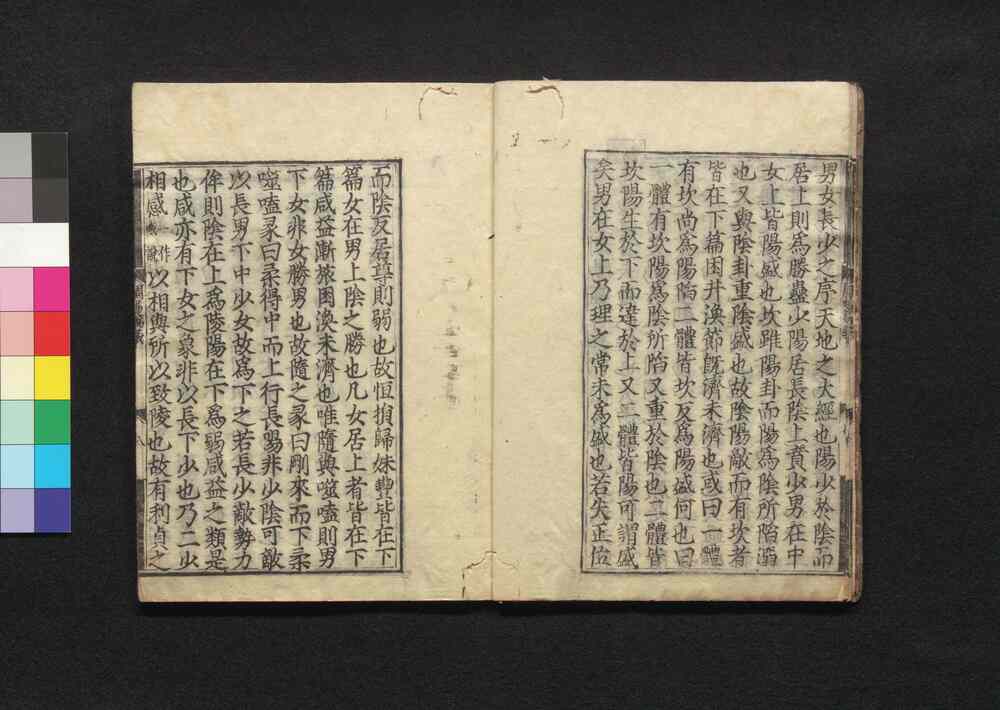 男女長少之序天地之大經也陽少於陰而
居上則爲勝蠱少陽居長陰上賁少男在中
女上皆陽盛也坎雖陽卦而陽爲陰所陷溺
也又與陰卦重陰盛也故陰陽敵而有坎者
皆在下篇困井渙節旣濟未濟也或曰一體
有坎尚爲陽陷二體皆坎反爲陽盛何也曰
一體有坎陽爲陰所陷又重於陰也二體皆
坎陽生於下而達於上又二體皆陽可謂盛
矣男在女上乃理之常未爲盛也若失正位
而陰反居尊則弱也故恒損歸妹豐皆在下
篇女在男上陰之勝也凡女居上者皆在下
篇咸益漸旅困渙未濟也唯隨與噬嗑則男
下女非女勝男也故隨之彖曰剛來而下柔
噬嗑彖曰柔得中而上行長陽非少陰可敵
以長男下中少女故爲下之若長少敵勢力
侔則陰在上爲陵陽在下爲弱咸益之類是
也咸亦有下女之象非以長下少也乃二少
相感一作感說以相與所以致陵也故有利貞之